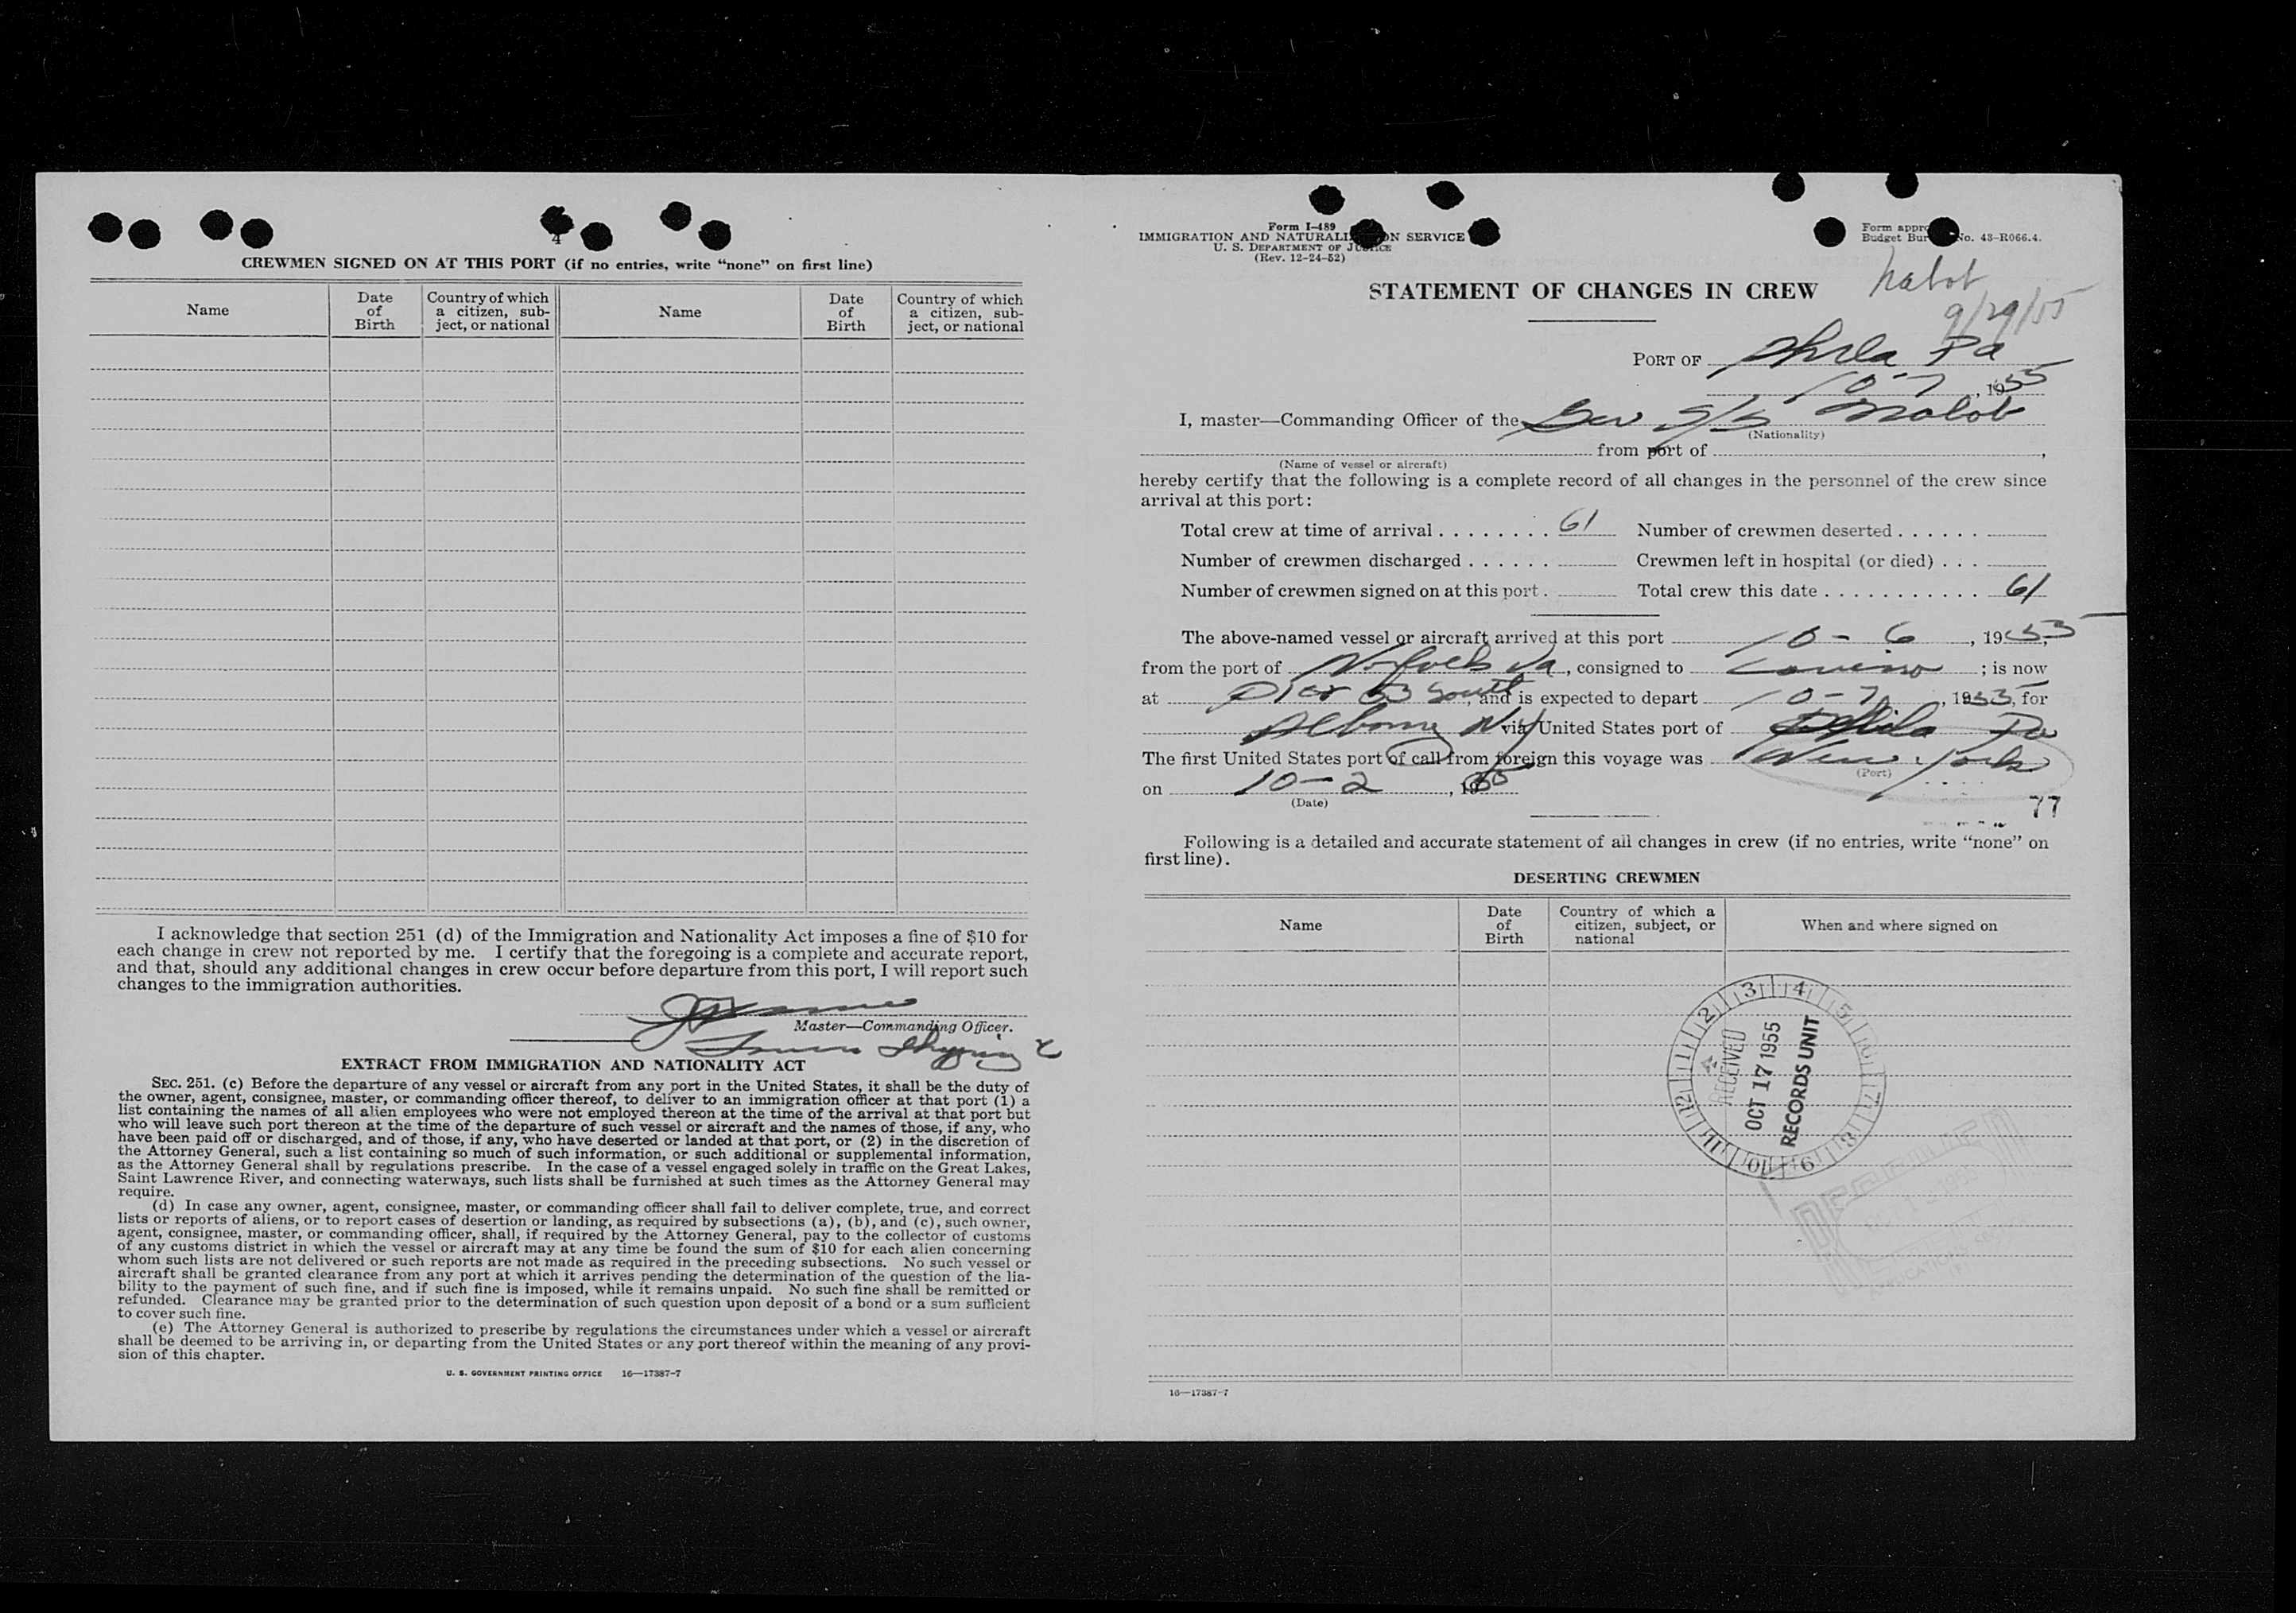 4
CREWMEN SIGNED ON AT THIS PORT (if no entries, write “none” on first line)
Name
Date of Birth
Country of which a citizen, subject, or national
Name
Date of Birth
Country of which a citizen, subject, or national
I acknowledge that section 251 (d) of the Immigration and Nationality Act imposes a fine of $10 for
each change in crew not reported by me. I certify that the foregoing is a complete and accurate report,
and that, should any additional changes in crew occur before departure from this port, I will report such
changes to the immigration authorities.
Master—Commanding Officer.
EXTRACT FROM IMMIGRATION AND NATIONALITY ACT
SEC. 251. (c) Before the departure of any vessel or aircraft from any port in the United States, it shall be the duty of
the owner, agent, consignee, master, or commanding officer thereof, to deliver to an immigration officer at that port (1) a
list containing the names of all alien employees who were not employed thereon at the time of the arrival at that port but
who will leave such port thereon at the time of the departure of such vessel or aircraft and the names of those, if any, who
have been paid off or discharged, and of those, if any, who have deserted or landed at that port, or (2) in the discretion of
the Attorney General, such a list containing so much of such information, or such additional or supplemental information,
as the Attorney General shall by regulations prescribe. In the case of a vessel engaged solely in traffic on the Great Lakes,
Saint Lawrence River, and connecting waterways, such lists shall be furnished at such times as the Attorney General may
require.
(d) In case any owner, agent, consignee, master, or commanding officer shall fail to deliver complete, true, and correct
lists or reports of aliens, or to report cases of desertion or landing, as required by subsections (a), (b), and (c), such owner,
agent, consignee, master, or commanding officer, shall, if required by the Attorney General, pay to the collector of customs
of any customs district in which the vessel or aircraft may at any time be found the sum of $10 for each alien concerning
whom such lists are not delivered or such reports are not made as required in the preceding subsections. No such vessel or
aircraft shall be granted clearance from any port at which it arrives pending the determination of the question of the lia-
bility to the payment of such fine, and if such fine is imposed, while it remains unpaid. No such fine shall be remitted or
refunded. Clearance may be granted prior to the determination of such question upon deposit of a bond or a sum sufficient
to cover such fine.
(e) The Attorney General is authorized to prescribe by regulations the circumstances under which a vessel or aircraft
shall be deemed to be arriving in, or departing from the United States or any port thereof within the meaning of any provi-
sion of this chapter.
U. S. GOVERNMENT PRINTING OFFICE 16—17387-7
Form I-489
IMMIGRATION AND NATURALIZATION SERVICE
U. S. DEPARTMENT OF JUSTICE
(Rev. 12-24-52)
Form appr
Budget Bur No. 43-R066.4.
Nabob
9/29/55
STATEMENT OF CHANGES IN CREW
PORT OF Phila Pa
10-7, 1955
I, master—Commanding Officer of the Ger S/S Nabob
(Nationality)
from port of
(Name of vessel or aircraft)
hereby certify that the following is a complete record of all changes in the personnel of the crew since
arrival at this port:
Total crew at time of arrival 61 Number of crewmen deserted
Number of crewmen discharged Crewmen left in hospital (or died)
Number of crewmen signed on at this port Total crew this date 61
The above-named vessel or aircraft arrived at this port 10-6, 1955
from the port of Norfolk Va, consigned to ; is now
at Pier 53 South, and is expected to depart 10-7, 1955, for
Albany NY via United States port of Phila Pa
The first United States port of call from foreign this voyage was New York
(Port)
on 10-2, 1955
(Date)
77
Following is a detailed and accurate statement of all changes in crew (if no entries, write “none” on
first line).
DESERTING CREWMEN
Name
Date of Birth
Country of which a citizen, subject, or national
When and where signed on
RECEIVED
OCT 17 1955
RECORDS UNIT
1 2 3 4 5 6 7 8 9 10 11 12
16—17387-7